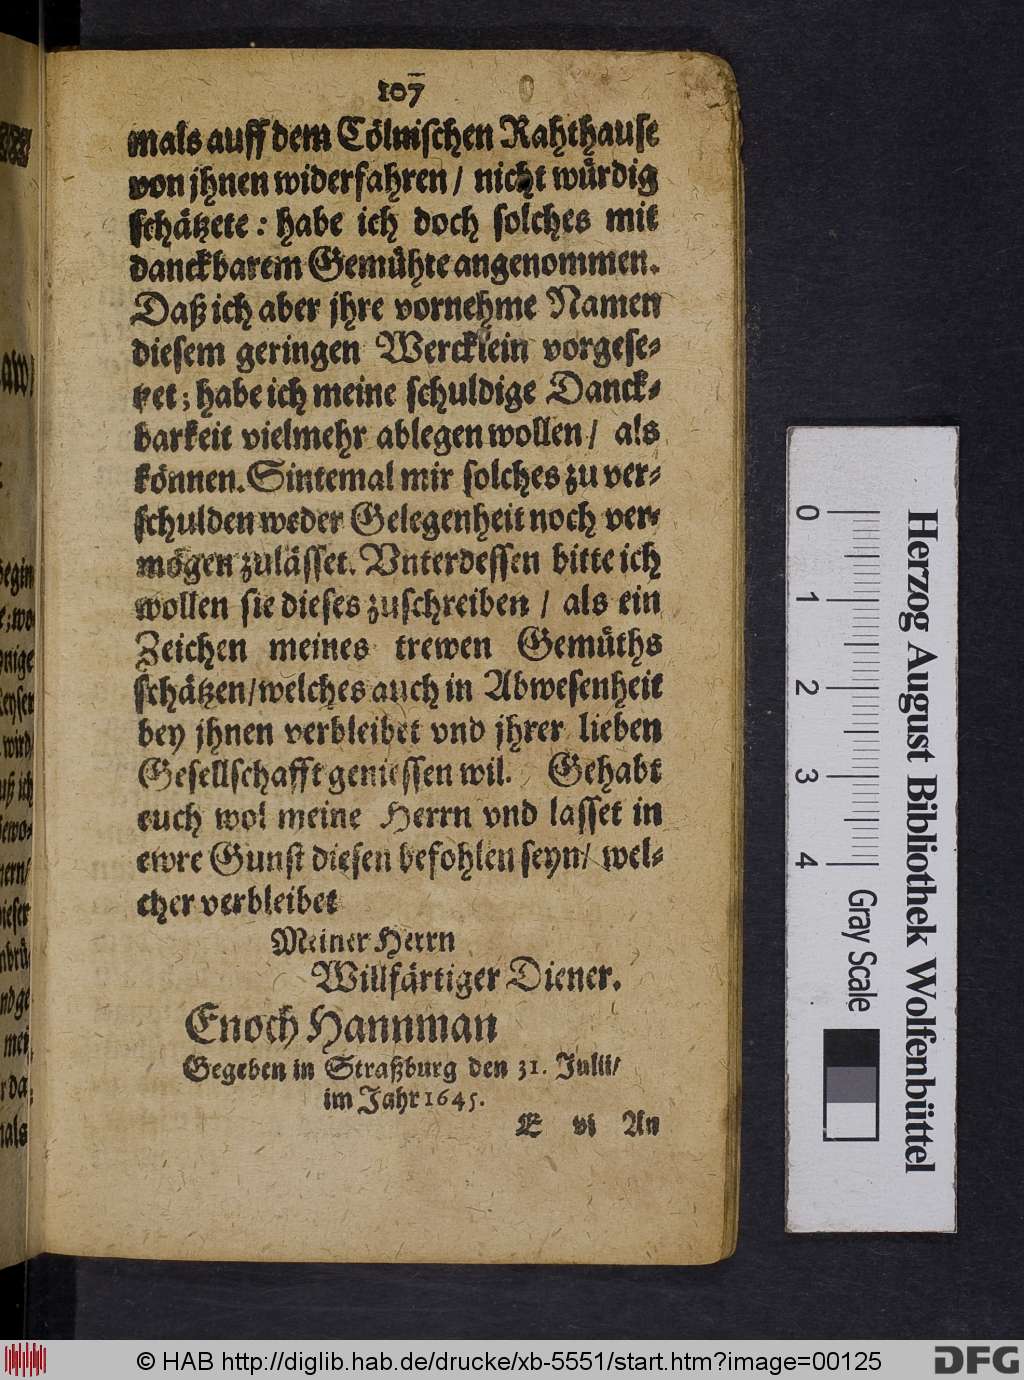 107
mals auff dem Cölnischen Rahthause
von jhnen widerfahren / nicht würdig
schätzete: habe ich doch solches mit
danckbarem Gemühte angenommen.
Daß ich aber jhre vornehme Namen
diesem geringen Wercklein vorgese-
tzet; habe ich meine schuldige Danck-
barkeit vielmehr ablegen wollen / als
können. Sintemal mir solches zu ver-
schulden weder Gelegenheit noch ver-
mögen zulässet. Vnterdessen bitte ich
wollen sie dieses zuschreiben / als ein
Zeichen meines trewen Gemüths
schätzen/welches auch in Abwesenheit
bey jhnen verbleibet vnd jhrer lieben
Gesellschafft geniessen wil. Gehabt
euch wol meine Herrn vnd lasset in
ewre Gunst diesen befohlen seyn/ wel-
cher verbleibet
Meiner Herrn
Willfärtiger Diener.
Enoch Hannman
Gegeben in Straßburg den 31. Julii/
im Jahr 1645.
E vj An
0 1 2 3 4
Gray Scale
Herzog August Bibliothek Wolfenbüttel
© HAB http://diglib.hab.de/drucke/xb-5551/start.htm?image=00125
DFG